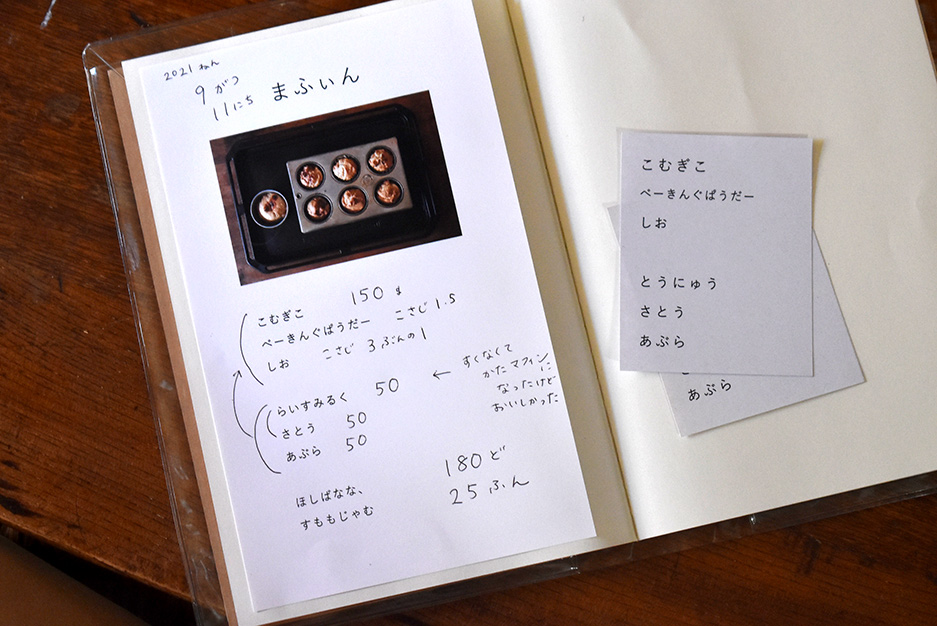 2021 ねん
9 がつ
11にち まふぃん
こむぎこ 150 g
べーきんぐぱうだー こさじ 1.5
しお こさじ 3 ぶんの 1
らいすみるく 50
← すくなくて
かた マフィン
に
なったけど
おいしかった
さとう 50
あぶら 50
ほしばなな、
すももじゃむ
180 ど
25 ふん
こむぎこ
べーきんぐぱうだー
しお
とうにゅう
さとう
あぶら
あぶら